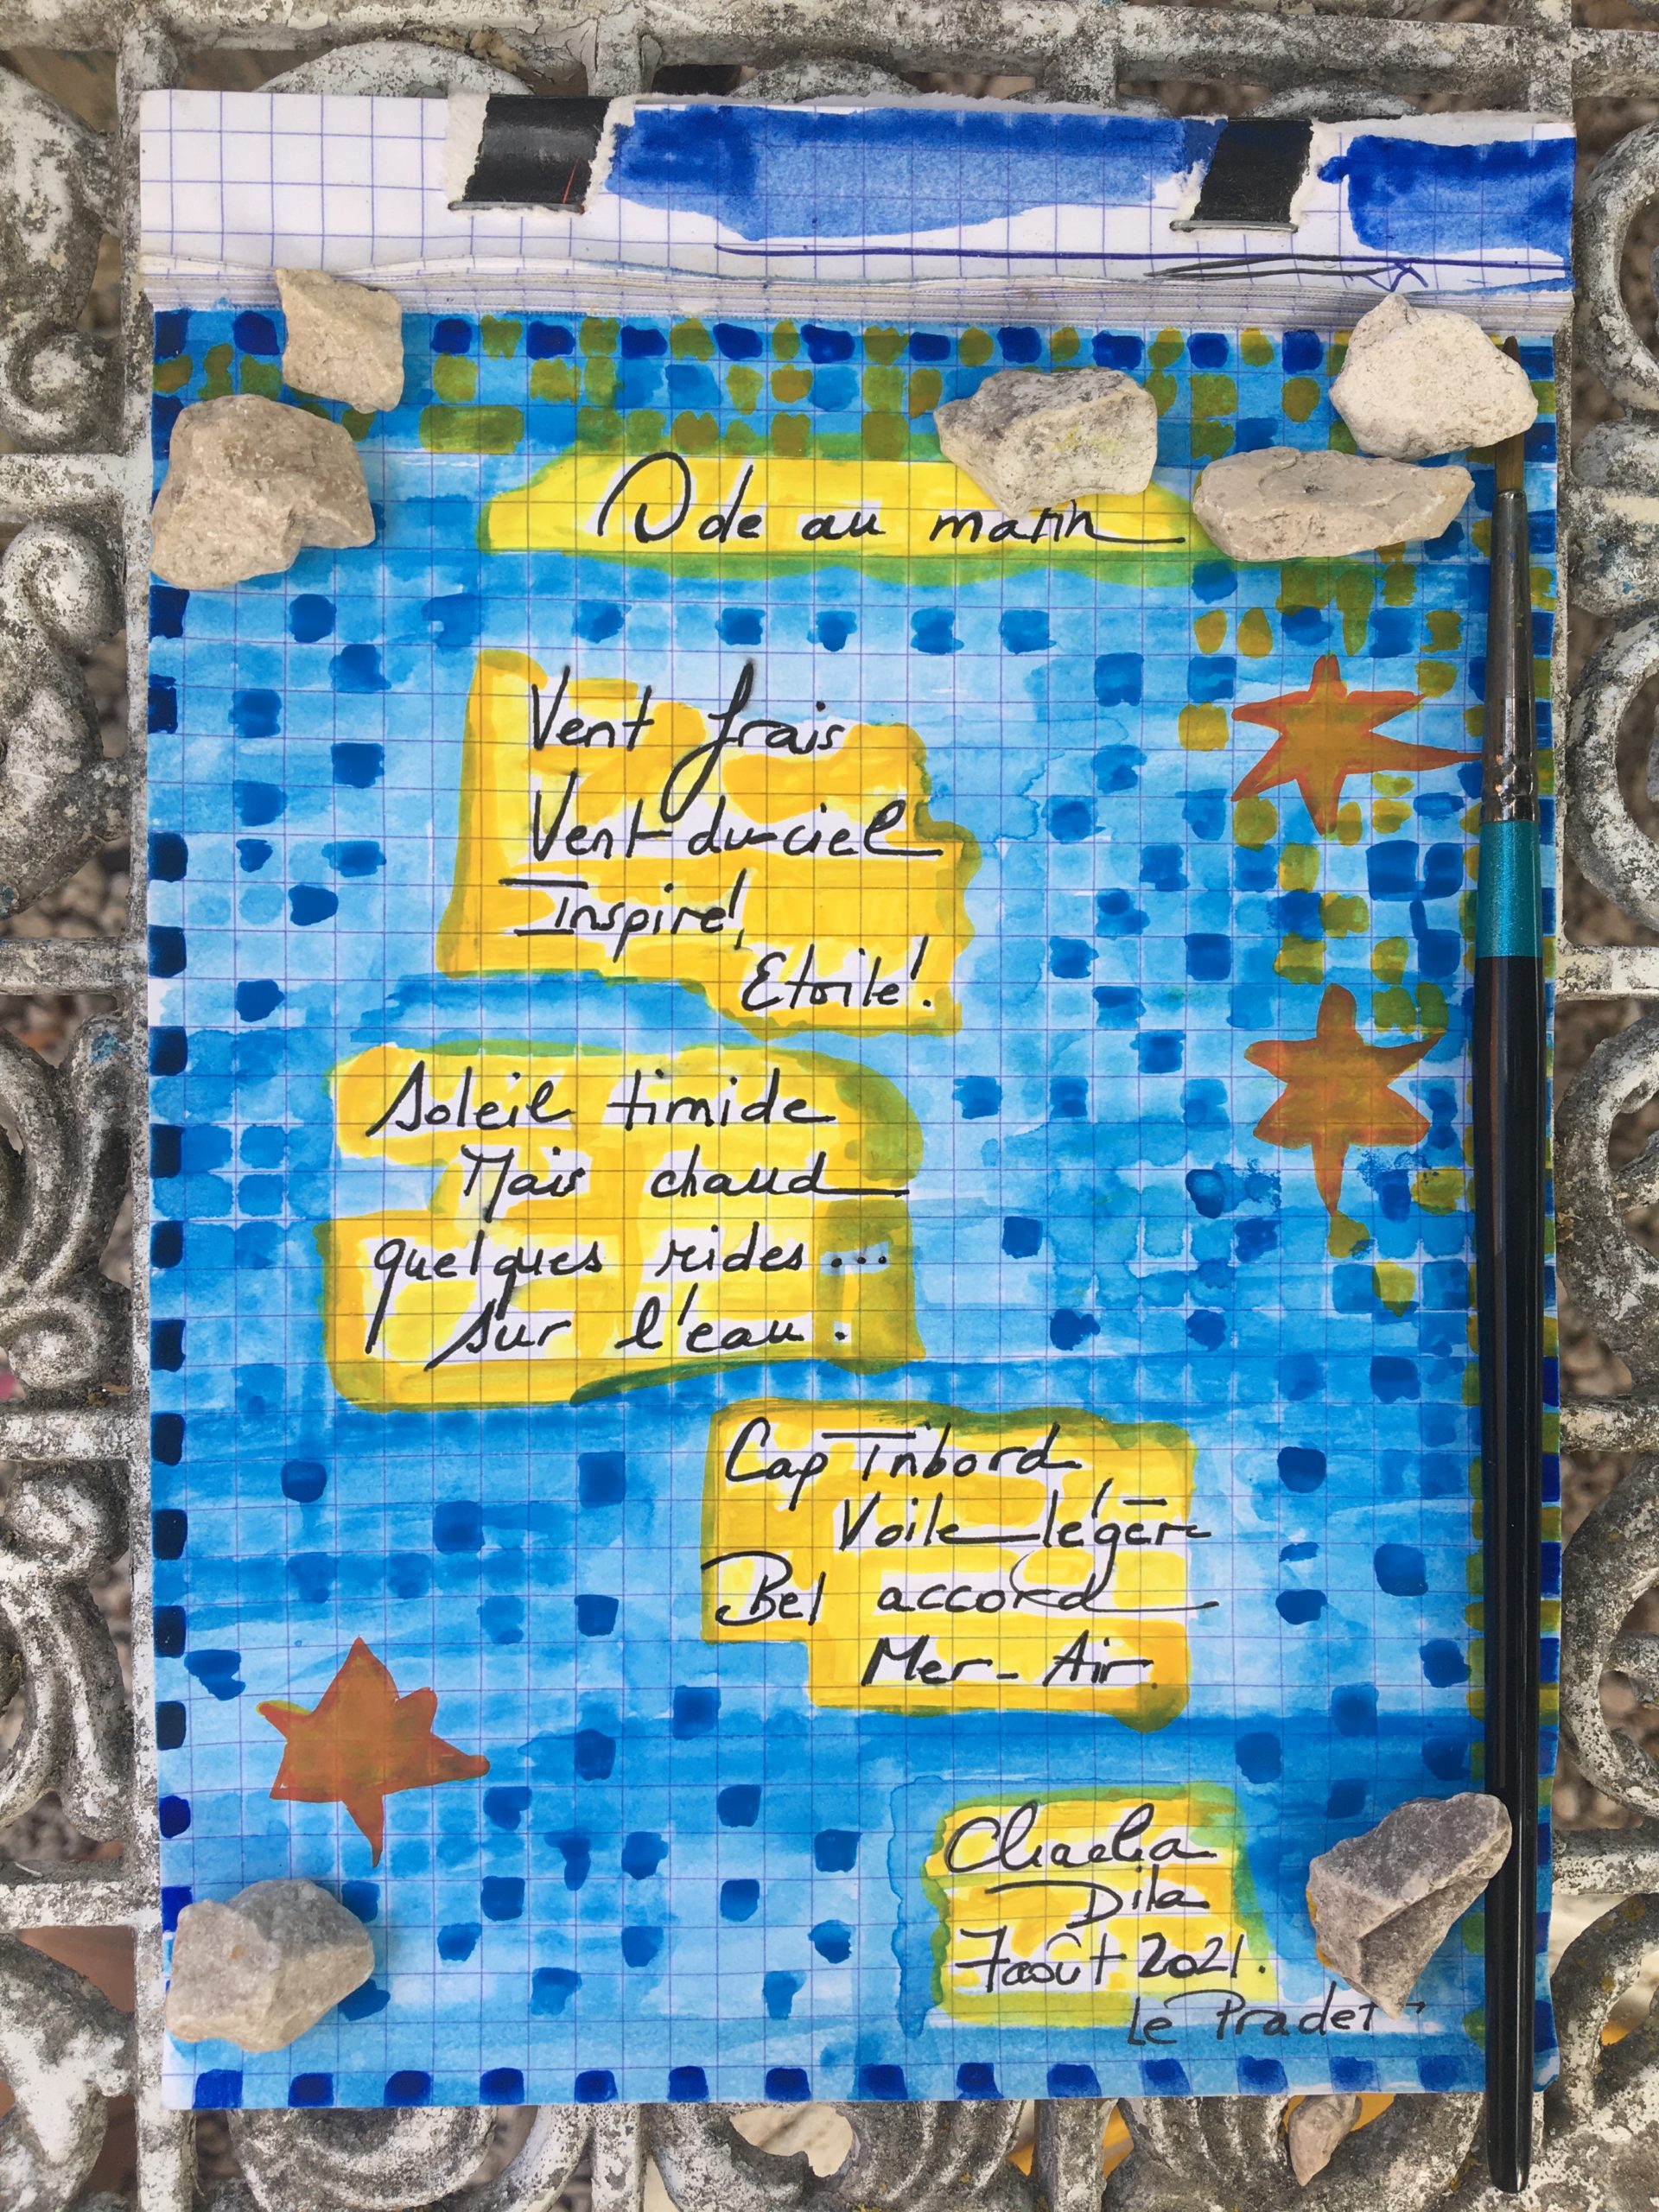 Ode au matin
Vent frais
Vent du ciel
Inspiré,
Etoilé!
Soleil timide
Mais chaud
quelques rides...
sur l'eau.
Cap Tribord
Voile légère
Bel accord
Mer-Air.
Dila
7 août 2021.
Le Pradet